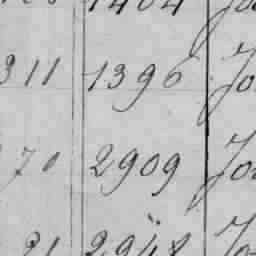 1404 Jo
311 1390 Jo
70 2909 Jo
21 2948 Jo